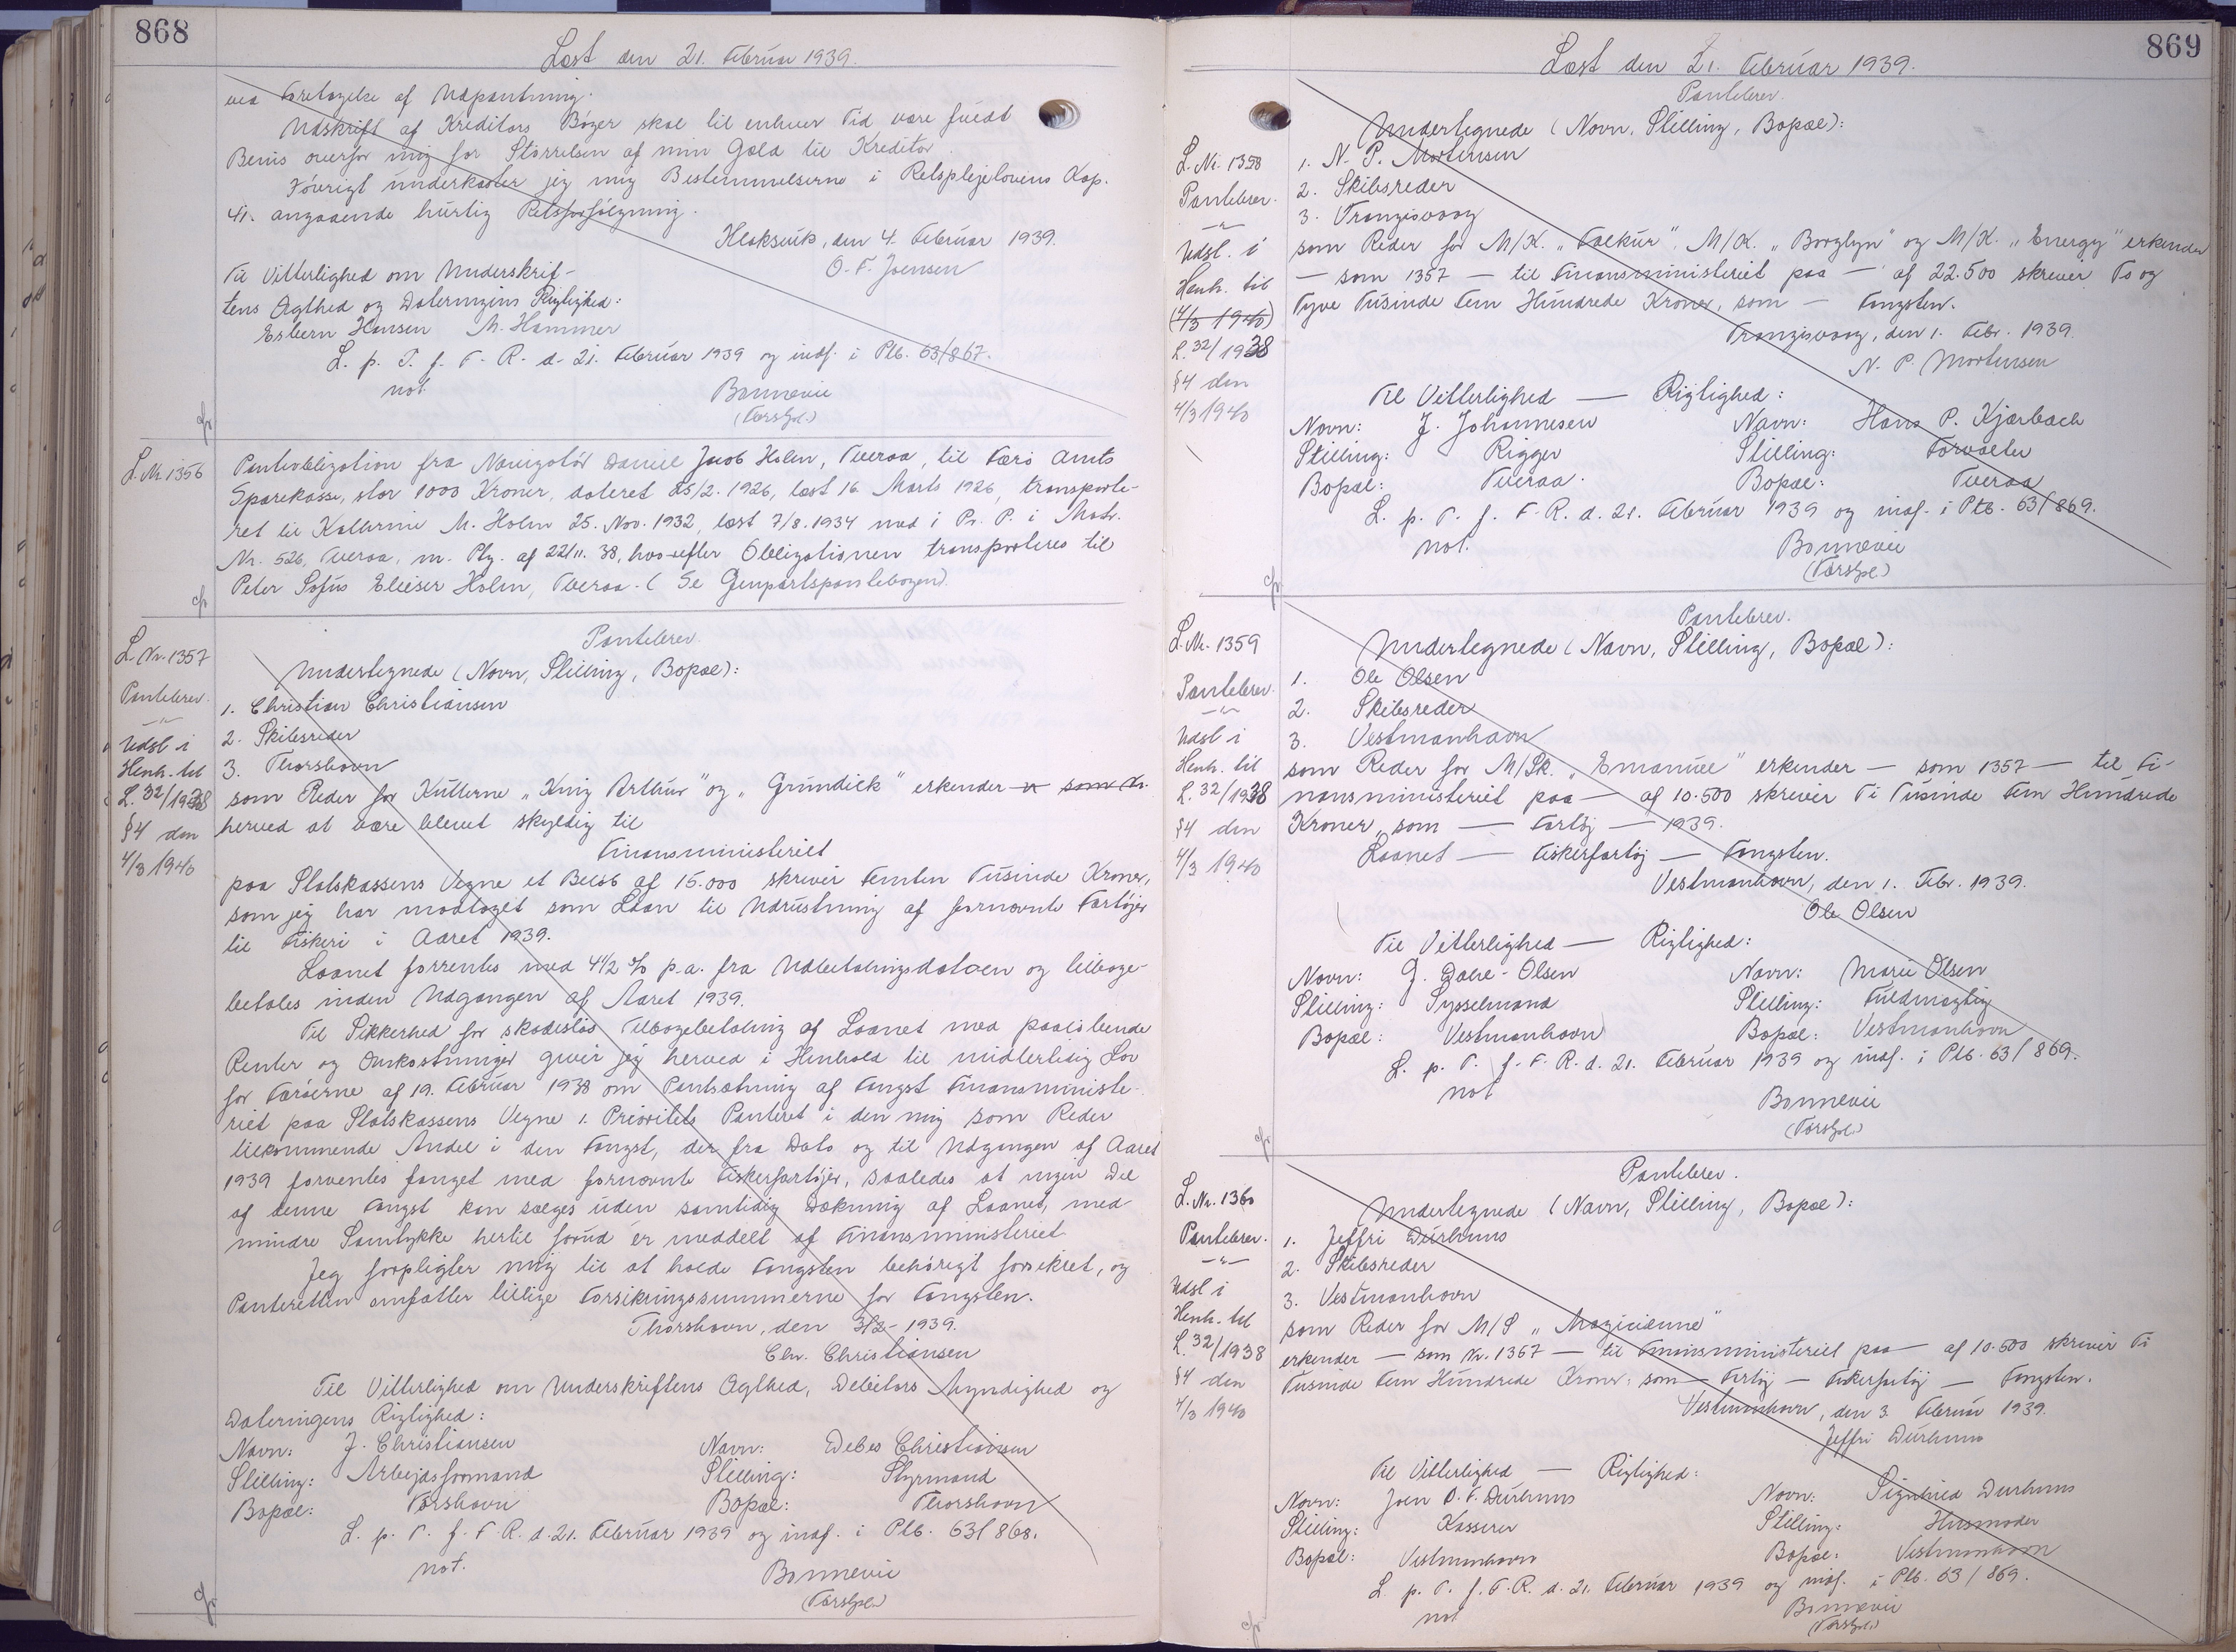 868
Læst den 21. Februar 1939.
ved Foretagelse af Udpantning.
Udskrift af Kreditors Bøger skal til enhver Tid være fuldt
Bevis overfor mig for Størrelsen af min Gæld til Kreditor.
Iøvrigt underkaster jeg mig Bestemmelserne i Retsplejelovens Kap.
41. angaaende hurtig Retsforfølgning.
Klaksvik, den 4. Februar 1939.
O. F. Joensen
Til Vitterlighed om Underskrif-
tens Ægthed og Dateringens Rigtighed:
Esbern Hansen M. Hammer
L. p. T. f. F. R. d. 21. Februar 1939 og indf. i Ptb. 63/867.
not.
Bonnevie
(Forstgl.)
L. Nr. 1356
Pantobligation fra Navigatør Daniel Jacob Holm, Tveraa, til Færø Amts
Sparekasse, stor 1000 Kroner, dateret 25/2. 1926, læst 16. Marts 1926, transporte-
ret til Kathrine M. Holm 25. Nov. 1932, læst 7/8. 1934 med i Pr. P. i Matr.
Nr. 526, Tveraa, m. Ptg. af 22/11. 38, hvorefter Obligationen transporteres til
Peter Sofus Elieser Holm, Tveraa. (Se Genpartspantebogen).
L. Nr. 1357
Pantebrev.
Udsl i
Henh. til
L. 32/1938
§4 den
4/3 1940
Pantebrev.
Undertegnede (Navn, Stilling, Bopæl):
1. Christian Christiansen
2. Skibsreder
3. Thorshavn
som Reder for Kutterne „King Arthur" og „Grundick" erkender
herved at være blevet skyldig til
Finansministeriet
paa Statskassens Vegne et Beløb af 15.000 skriver Femten Tusinde Kroner,
som jeg har modtaget som Laan til Udrustning af fornævnte Fartøjer
til Fiskeri i Aaret 1939.
Laanet forrentes med 4 1/2 % p.a. fra Udbetalingsdatoen og tilbage-
betales inden Udgangen af Aaret 1939.
Til Sikkerhed for skadesløs Tilbagebetaling af Laanet med paaløbende
Renter og Omkostninger giver jeg herved i Henhold til midlertidig Lov
for Færøerne af 19. Februar 1938 om Pantsætning af Fangst Finansministe-
riet paa Statskassens Vegne 1. Prioritets Panteret i den mig som Reder
tilkommende Andel i den Fangst, der fra Dato og til Udgangen af Aaret
1939 forventes fanget med fornævnte Fiskerfartøjer, saaledes at ingen Del
af denne Fangst kan sælges uden samtidig Dækning af Laanet, med
mindre Samtykke hertil forud er meddelt af Finansministeriet.
Jeg forpligter mig til at holde Fangsten behørigt forsikret, og
Panteretten omfatter tillige Forsikringssummerne for Fangsten.
Thorshavn, den 3/2- 1939.
Chr. Christiansen
Til Vitterlighed om Underskriftens Ægthed, Debitors Myndighed og
Dateringens Rigtighed:
Navn: J. Christiansen Navn: Debes Christiansen
Stilling: Arbejdsformand Stilling: Styrmand
Bopæl: Torshavn Bopæl: Thorshavn
L. p. T. f. F. R. d. 21. Februar 1939 og indf. i Ptb. 63/868.
not.
Bonnevie
(Forstgl.)
869
Læst den 21. Februar 1939.
L. Nr. 1358
Pantebrev.
Udsl. i
Henh. til
(4/3 1940)
L. 32/1938
§4 den
4/3 1940
Pantebrev.
Undertegnede (Navn, Stilling, Bopæl):
1. N. P. Mortensen
2. Skibsreder
3. Trangisvaag
som Reder for M/K. „Falkur", M/K. „Borglyn" og M/K. „Energy" erkender
— som 1357 — til Finansministeriet paa — af 22.500 skriver To og
Tyve Tusinde Fem Hundrede Kroner, som — Fangsten.
Trangisvaag, den 1. Febr. 1939.
N. P. Mortensen
Til Vitterlighed — Rigtighed:
Navn: J. Johannesen Navn: Hans P. Kjærbæch
Stilling: Rigger Stilling: Forvalter
Bopæl: Tveraa. Bopæl: Tveraa
L. p. T. f. F. R. d. 21. Februar 1939 og indf. i Ptb. 63/869.
not.
Bonnevie
(Forstgl.)
L. Nr. 1359
Pantebrev.
Udsl i
Henh. til
L. 32/1938
§4 den
4/3 1940
Pantebrev.
Undertegnede (Navn, Stilling, Bopæl):
1. Ole Olsen
2. Skibsreder
3. Vestmanhavn
som Reder for M/Sk. „Emanuel" erkender — som 1357 — til Fi-
nansministeriet paa — af 10.500 skriver Ti Tusinde Fem Hundrede
Kroner, som — Fartøj — 1939.
Laanet — Fiskerfartøj — Fangsten.
Vestmanhavn, den 1. Febr. 1939.
Ole Olsen
Til Vitterlighed — Rigtighed:
Navn: G. Dahl-Olsen Navn: Marie Olsen
Stilling: Sysselmand Stilling: Fuldmægtig
Bopæl: Vestmanhavn Bopæl: Vestmanhavn
L. p. T. f. F. R. d. 21. Februar 1939 og indf. i Ptb. 63/869.
not
Bonnevie
(Forstgl.)
L. Nr. 1360
Pantebrev.
Udsl i
Henh. til
L. 32/1938
§4 den
4/3 1940
Pantebrev.
Undertegnede (Navn, Stilling, Bopæl):
1. Jeffri Durhuus
2. Skibsreder
3. Vestmanhavn
som Reder for M/S „Magicienne"
erkender — som Nr. 1357 — til Finansministeriet paa — af 10.500 skriver Ti
Tusinde Fem Hundrede Kroner, som — Fartøj — Fiskerfartøj — Fangsten.
Vestmanhavn, den 3. Februar 1939.
Jeffri Durhuus
Til Vitterlighed — Rigtighed:
Navn: Joen D. F. Durhuus Navn: Sigfried Durhuus
Stilling: Kasserer Stilling: Husmoder
Bopæl: Vestmanhavn Bopæl: Vestmanhavn
L. p. T. f. F. R. d. 21. Februar 1939 og indf. i Ptb. 63/869.
not
Bonnevie
(Forstgl.)